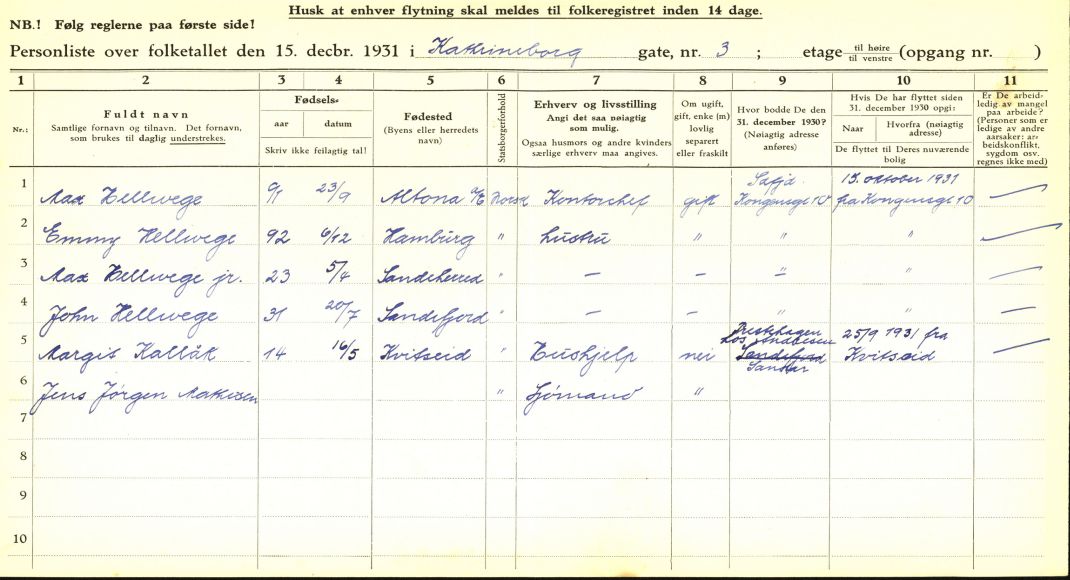 Husk at enhver flytning skal meldes til folkeregistret inden 14 dage.
NB.! Følg reglerne paa første side!
Personliste over folketallet den 15. decbr. 1931 i Kathrineborg gate, nr. 3 ; etage til høire / til venstre (opgang nr. )
1 2 3 4 5 6 7 8 9 10 11
Nr.:
Fuldt navn
Samtlige fornavn og tilnavn. Det fornavn,
som brukes til daglig understrekes.
Fødsels-
aar datum
Skriv ikke feilagtig tal!
Fødested
(Byens eller herredets
navn)
Statsborgerforhold
Erhverv og livsstilling
Angi det saa nøiagtig
som mulig.
Ogsaa husmors og andre kvinders
særlige erhverv maa angives.
Om ugift,
gift, enke (m)
lovlig
separert
eller fraskilt
Hvor bodde De den
31. december 1930?
(Nøiagtig adresse
anføres)
Hvis De har flyttet siden
31. december 1930 opgi:
Naar Hvorfra (nøiagtig
adresse)
De flyttet til Deres nuværende
bolig
Er De arbeid-
ledig av mangel
paa arbeide?
(Personer som er
ledige av andre
aarsaker: ar-
beidskonflikt,
sygdom osv.
regnes ikke med)
1 Max Hellwege 91 23/9 Altona a/E Norsk Kontorchef gift Kongensgt 10 13. oktober 1931
fra Kongensgt 10 —
2 Emmy Hellwege 92 6/12 Hamburg " hustru " " " —
3 Max Hellwege jr. 23 5/4 Sandeherred " — — " " —
4 John Hellwege 31 20/7 Sandefjord " — — " " —
5 Margit Kallåk 14 16/5 Kvitseid " Hushjelp nei Prestehagen
hos
Sandefjord
Sandar
25/9 1931 fra
Kvitseid —
6 Jens Jørgen Mathisen " Sjømand "
7
8
9
10